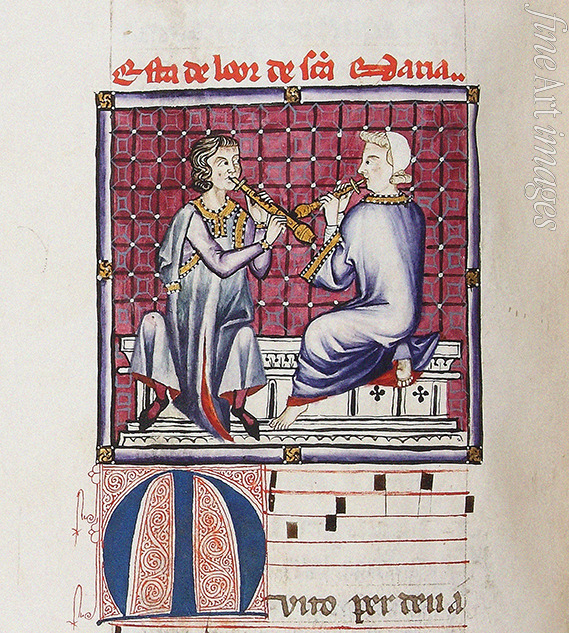 Esta de loor de scā Maria..
Muito per deu a
fineArtimages